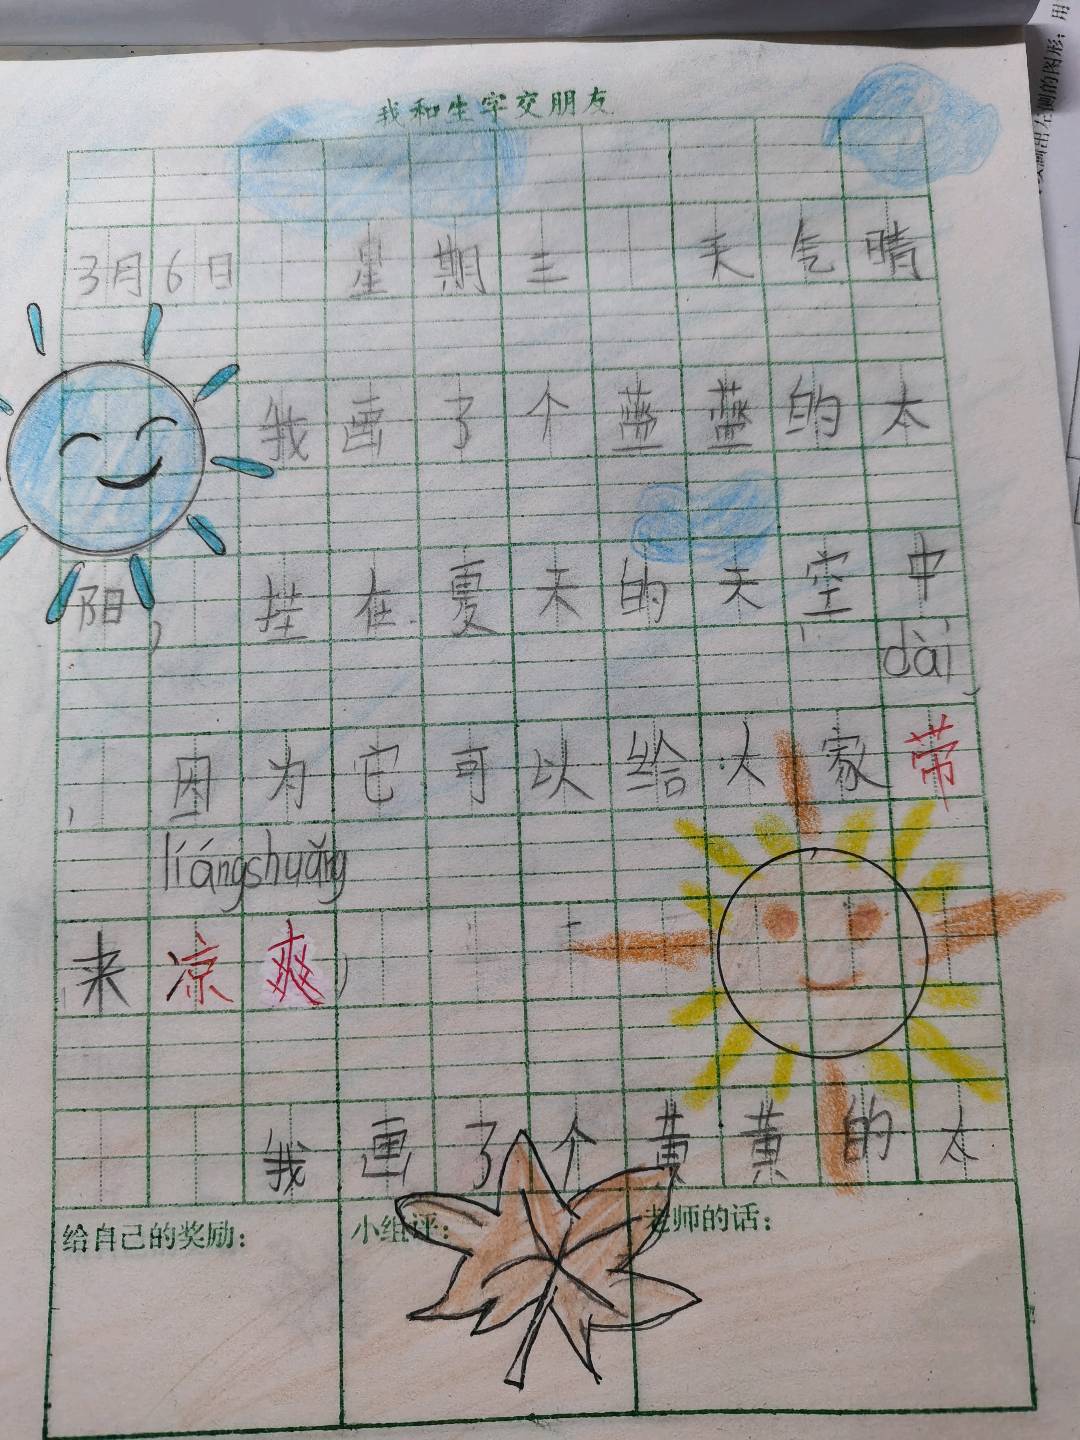 我和生字交朋友
3月6日 星期三 天气晴
我画了个蓝蓝的太
阳，挂在夏天的天空中
dài
，因为它可以给大家带
liángshuǎng
来凉爽，
我画了个黄黄的太
给自己的奖励：
小组评：
老师的话：